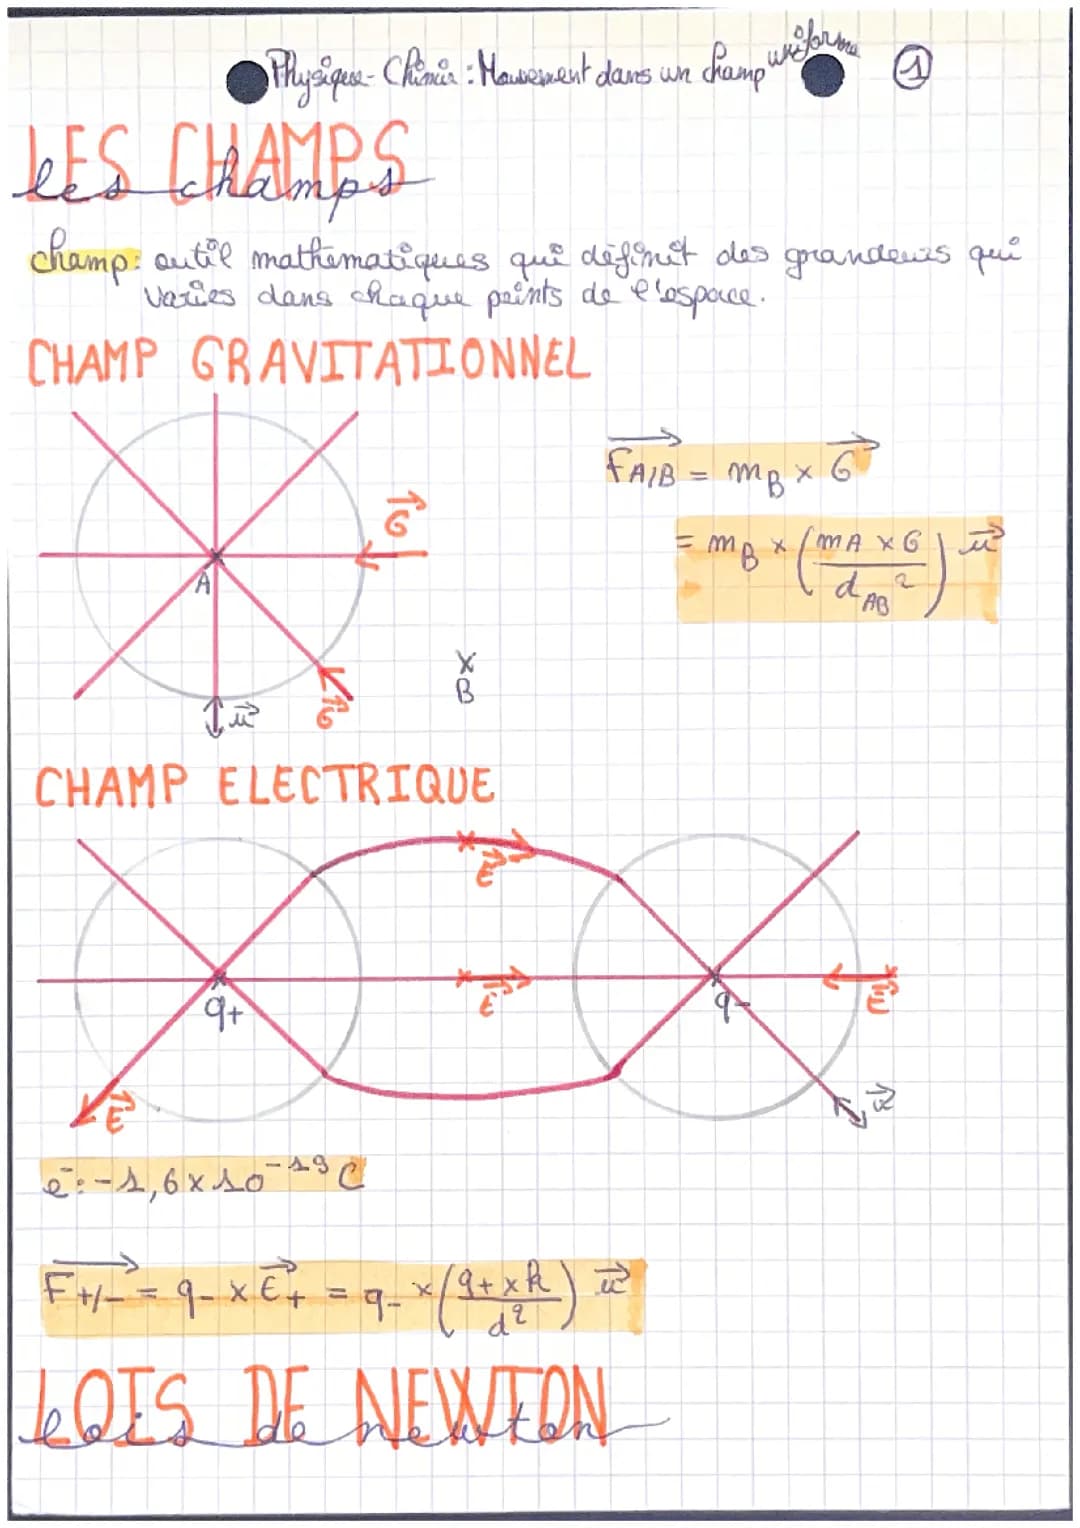 Physique-Chimie : Mouvement dans un champ uniforme
1
LES CHAMPS
les champs
champ: outil mathématiques qui définit des grandeurs qui
varies dans chaque points de l'espace.
CHAMP GRAVITATIONNEL
F A/B = mB × G
G
= mB × (mA × G / dAB²) u
A
B
u
G
CHAMP ELECTRIQUE
E
q+
E
q-
E
E
u
e⁻: -1,6 × 10⁻¹⁹ C
F+/- = q- × E+ = q- × (q+ × k / d²) u
LOIS DE NEWTON
lois de newton